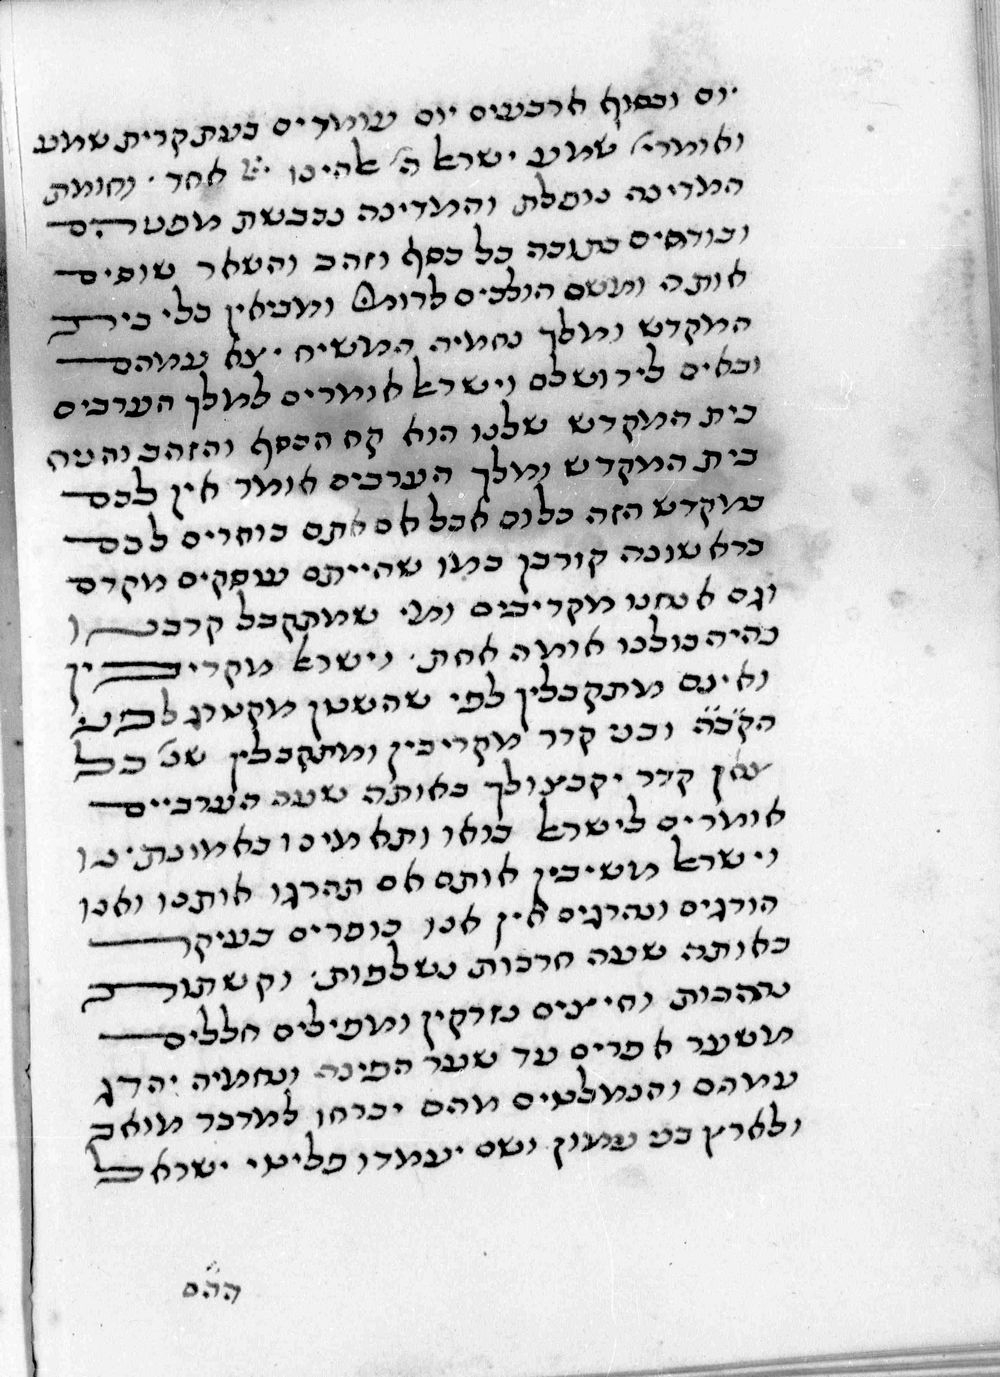 יום ובסוף ארבעים יום עומדים בעת קרית שמע
ואומרי' שמע ישראל ה' אלהינו ה' אחד. וחומת
המדינה נופלת והמדינה נכבשת מפטרום
ובוזזים מתוכה כל כסף וזהב והשאר שוסים
אותה ומשם הולכים לרומה ומביאין כלי בית
המקדש ומלך נחמיה המשיח יצא עמהם
ובאים לירושלם וישראל אומרים למלך הערבים
בית המקדש שלנו הוא קח הכסף והזהב והניח
בית המקדש ומלך הערבים אומר אין לכם
במקדש הזה כלום אבל אם אתם בוחרים לכם
בראשונה קורבן כמו שהייתם עסקים מקדם
וגם אנחנו מקריבים ומי שמתקבל קרבנו
נהיה כולנו אומה אחת. וישראל מקריבין
ואינם מתקבלין לפי שהשטן מקטרג לפני
הק'ב'ה ובני קדר מקריבין ומתקבלין שנ' כל
צאן קדר יקבצו לך באותה שעה הערביים
אומרים לישראל בואו ותאמינו באמונתינו
וישראל משיבין אותם אם תהרגו אותנו ואנו
הורגים ונהרגים אין אנו כופרים בעיקר
באותה שעה חרבות נשלפות. וקשתות
נדרכות וחיצים נזרקין ומפילים חללים
משער אפרים עד שער הפינה ונחמיה יהרג
עמהם והנמלטים מהם יברחו למדבר מואב
ולארץ בני עמון ושם יעמדו פליטי ישראל
ההם